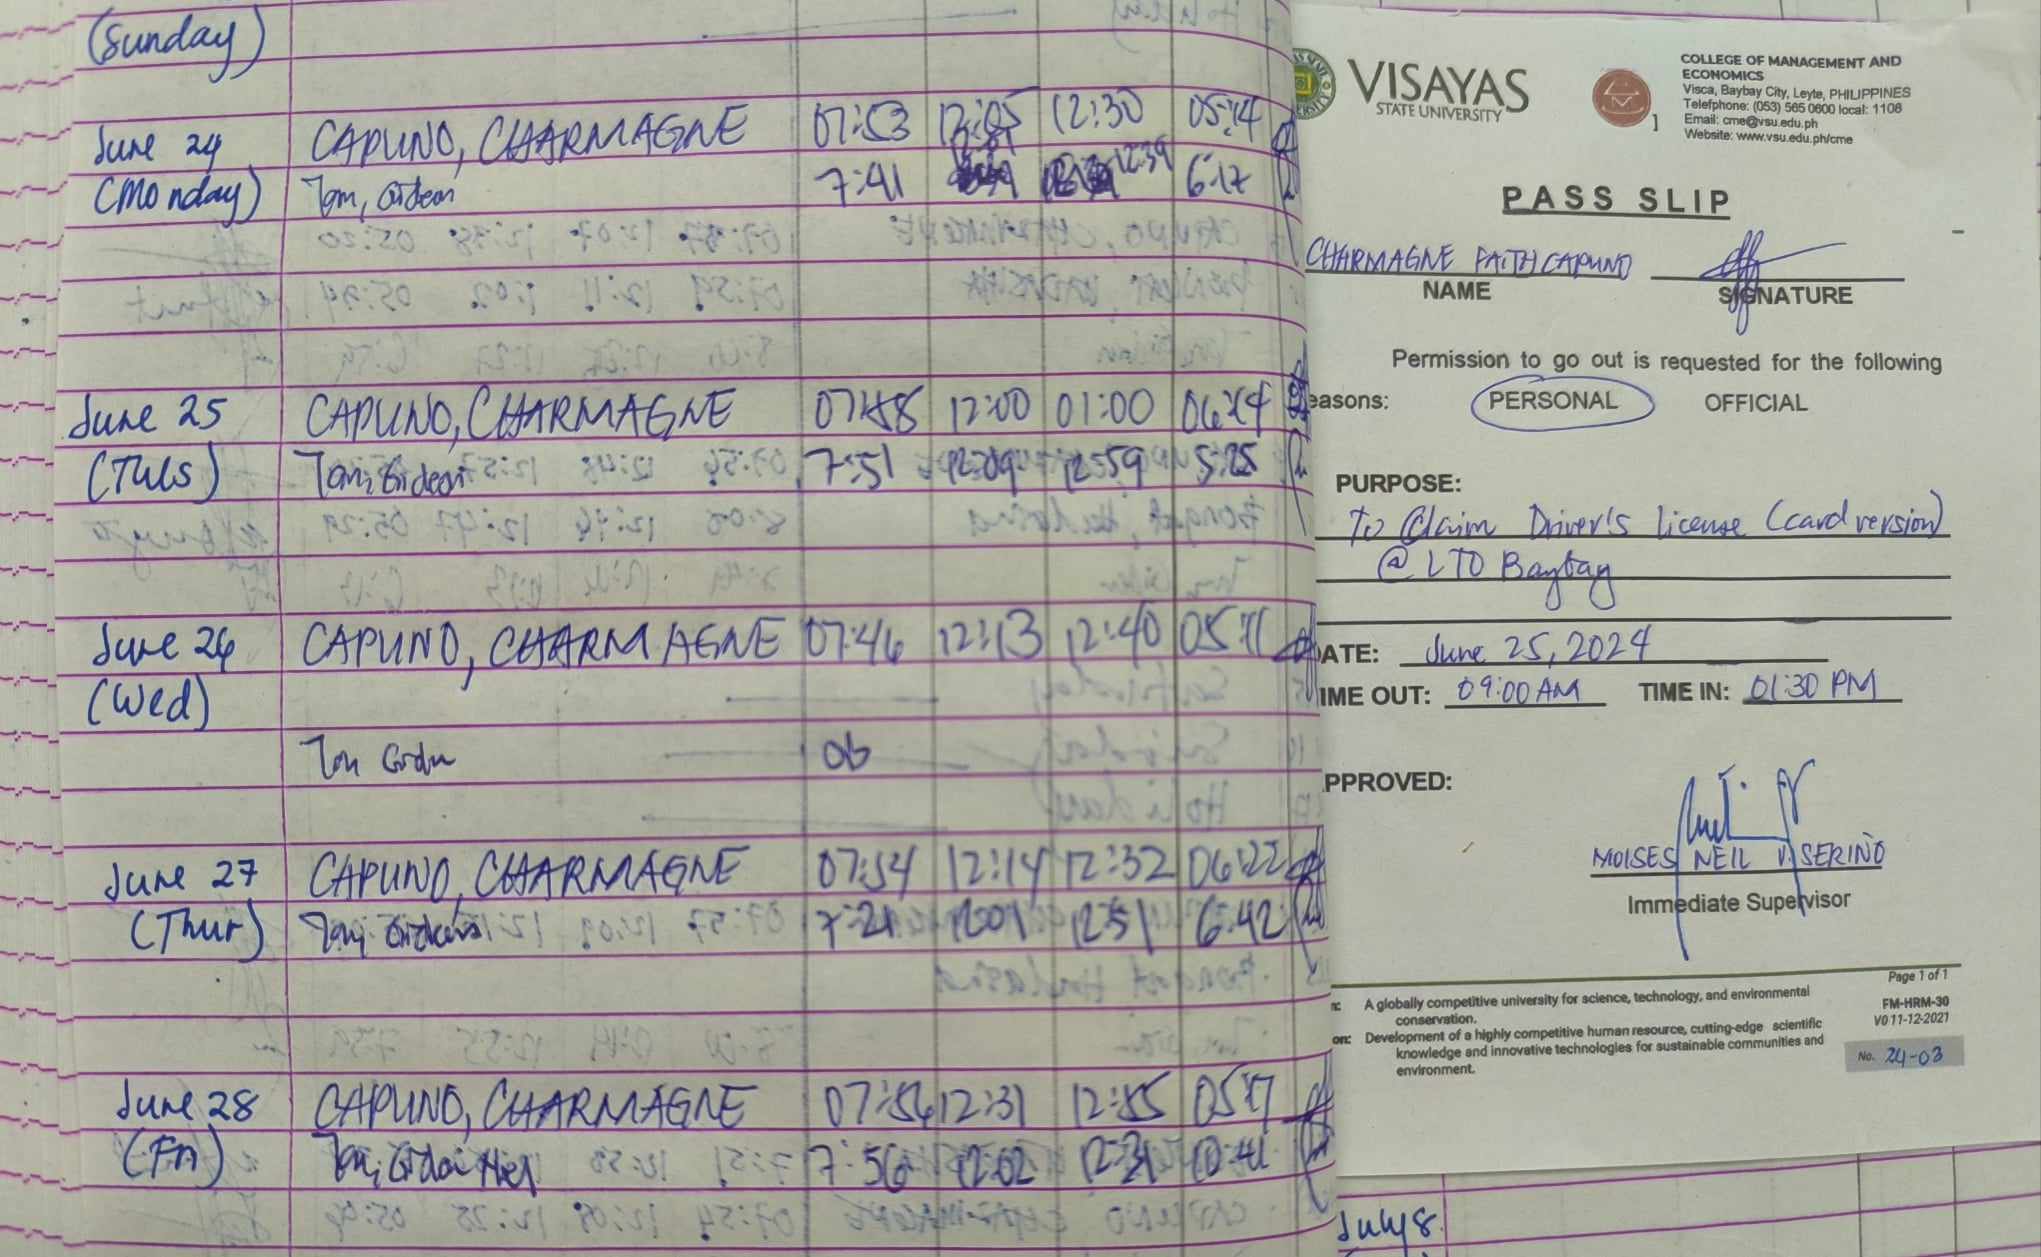 (Sunday)
June 24 CAPUNO, CHARMAGNE 07:53 12:05 12:30 05:14
(Monday) Tan, Gideon 7:41 12:39 6:17
June 25 CAPUNO, CHARMAGNE 07:58 12:00 01:00 06:24
(Tues) Tan, Gideon 7:51 12:09 12:59 5:25
June 26 CAPUNO, CHARMAGNE 07:46 12:13 12:40 05:11
(Wed)
Tan Gideon ob
June 27 CAPUNO, CHARMAGNE 07:54 12:14 12:32 06:22
(Thur) Tan, 7:21 1201 12:51 6:42
June 28 CAPUNO, CHARMAGNE 07:56 12:31 12:55 05:17
(Fri) Tan, 7:56 12:02 12:31
VISAYAS
STATE UNIVERSITY
COLLEGE OF MANAGEMENT AND
ECONOMICS
Visca, Baybay City, Leyte, PHILIPPINES
Telefphone: (053) 565 0600 local: 1108
Email: cme@vsu.edu.ph
Website: www.vsu.edu.ph/cme
]
PASS SLIP
CHARMAGNE FAITH CAPUNO
NAME SIGNATURE
Permission to go out is requested for the following
easons: PERSONAL OFFICIAL
PURPOSE:
To Claim Driver's License (card version)
@ LTO Baybay
ATE: June 25, 2024
IME OUT: 09:00 AM TIME IN: 01:30 PM
PPROVED:
MOISES NEIL V. SERIÑO
Immediate Supervisor
Page 1 of 1
A globally competitive university for science, technology, and environmental
conservation.
FM-HRM-30
V0 11-12-2021
on: Development of a highly competitive human resource, cutting-edge scientific
knowledge and innovative technologies for sustainable communities and
environment.
No. 24-03
July 8